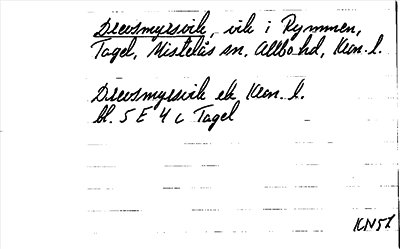 Drevsmyrsvik, vik i Rymmen,
Tagel, Mistelås sn, Allbo hd, Kron. l.
Drevsmyrsvik ek Kron. l.
bl. 5 E 4 c Tagel
KN57